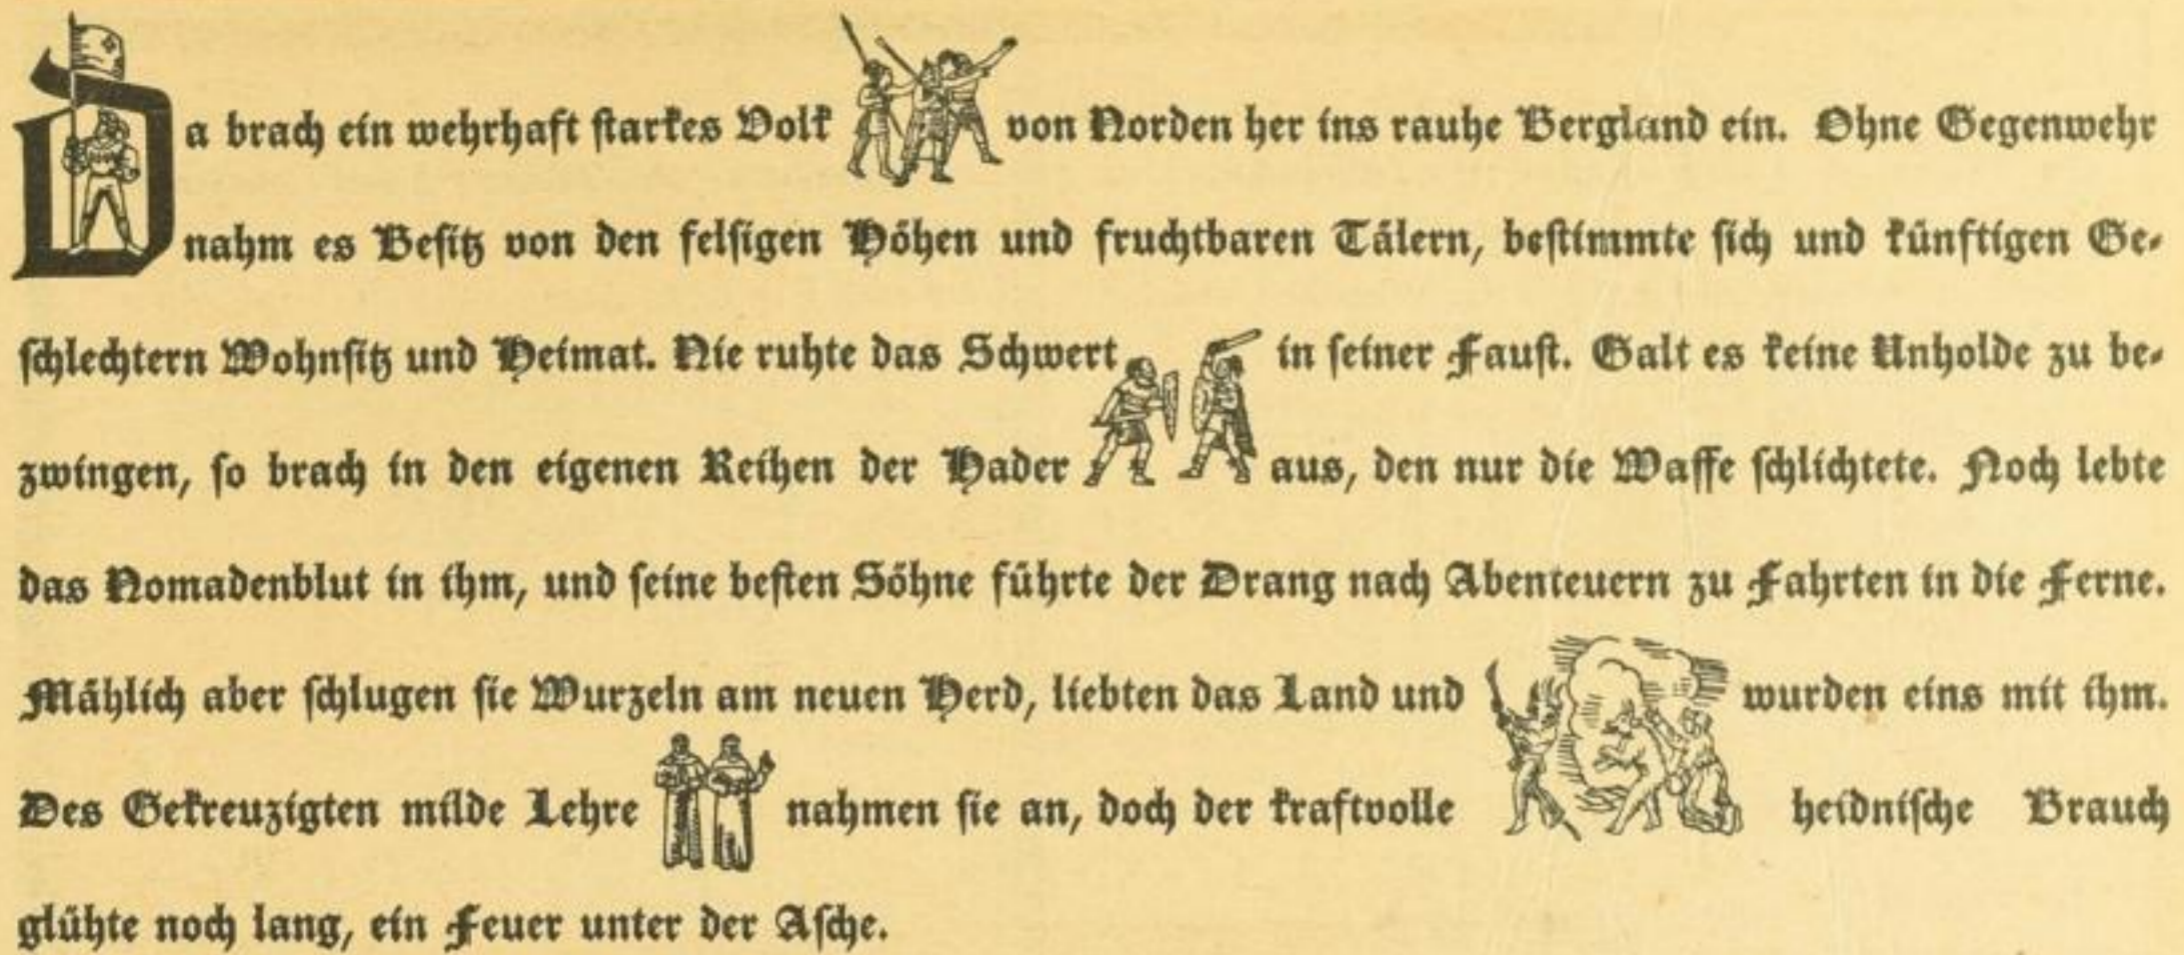 Da brach ein wehrhaft starkes Volk von Norden her ins rauhe Bergland ein. Ohne Gegenwehr
nahm es Besitz von den felsigen Höhen und fruchtbaren Tälern, bestimmte sich und künftigen Ge-
schlechtern Wohnsitz und Heimat. Nie ruhte das Schwert in seiner Faust. Galt es keine Unholde zu be-
zwingen, so brach in den eigenen Reihen der Hader aus, den nur die Waffe schlichtete. Noch lebte
das Nomadenblut in ihm, und seine besten Söhne führte der Drang nach Abenteuern zu Fahrten in die Ferne.
Mählich aber schlugen sie Wurzeln am neuen Herd, liebten das Land und wurden eins mit ihm.
Des Gekreuzigten milde Lehre nahmen sie an, doch der kraftvolle heidnische Brauch
glühte noch lang, ein Feuer unter der Asche.